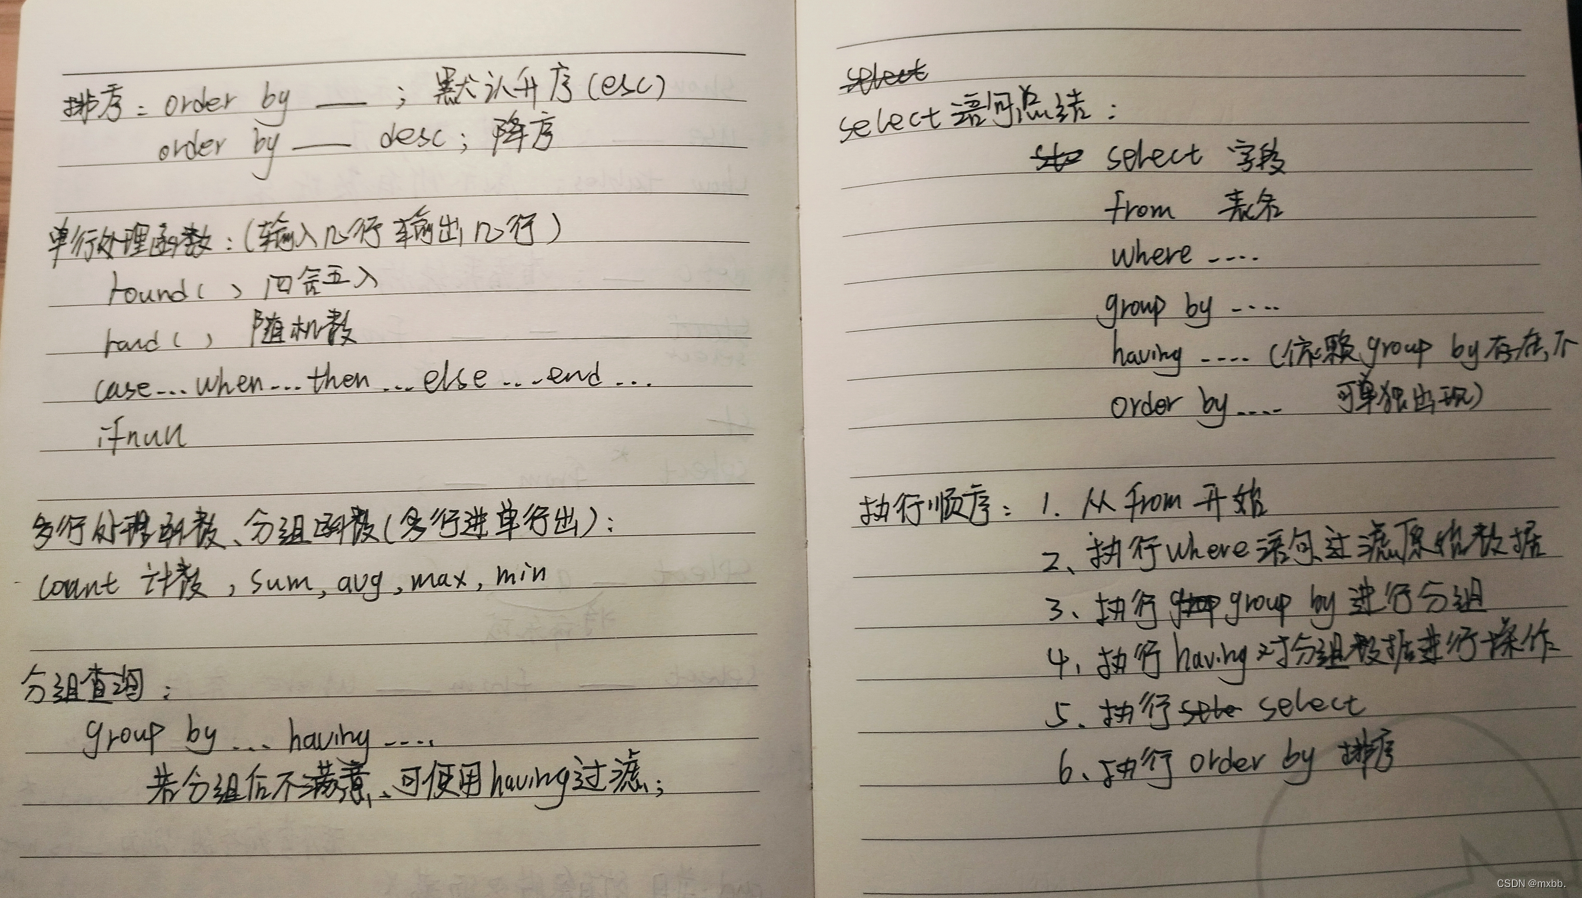 排序：order by ___ ; 默认升序(esc)
order by ___ desc; 降序
单行处理函数：(输入几行输出几行)
round( ) 四舍五入
rand( ) 随机数
case...when...then...else...end...
ifnull
多行处理函数、分组函数(多行进单行出)：
count 计数, sum, avg, max, min
分组查询：
group by ... having ....
若分组后不满意、可使用having过滤;
select
select语句总结：
select 字段
from 表名
where ....
group by ....
having ....(依赖group by存在,不
order by .... 可单独出现)
执行顺序：1. 从from开始
2、执行where语句,过滤原始数据
3、执行 group group by 进行分组
4、执行having对分组数据进行操作
5、执行 sele select
6、执行 order by 排序
CSDN @mxbb.